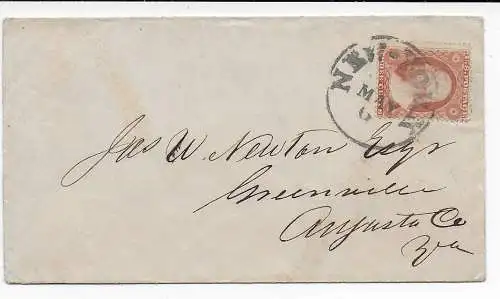 NEW-YORK
MAY
6
Jas W. Newton Esqr
Greenville
Augusta Co
Va